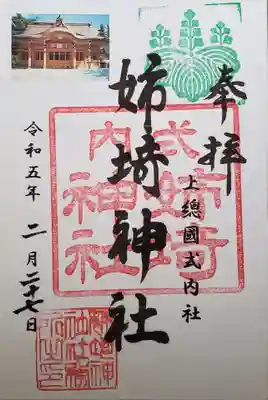 奉拝
上總國式内社
姉埼神社
式内
姉埼
神社
令和五年 二月二十七日